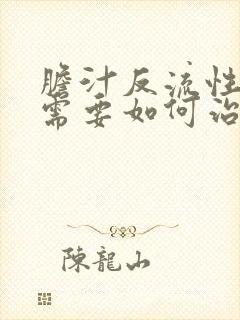 膽汁反流性
需要如何治
陳龍山